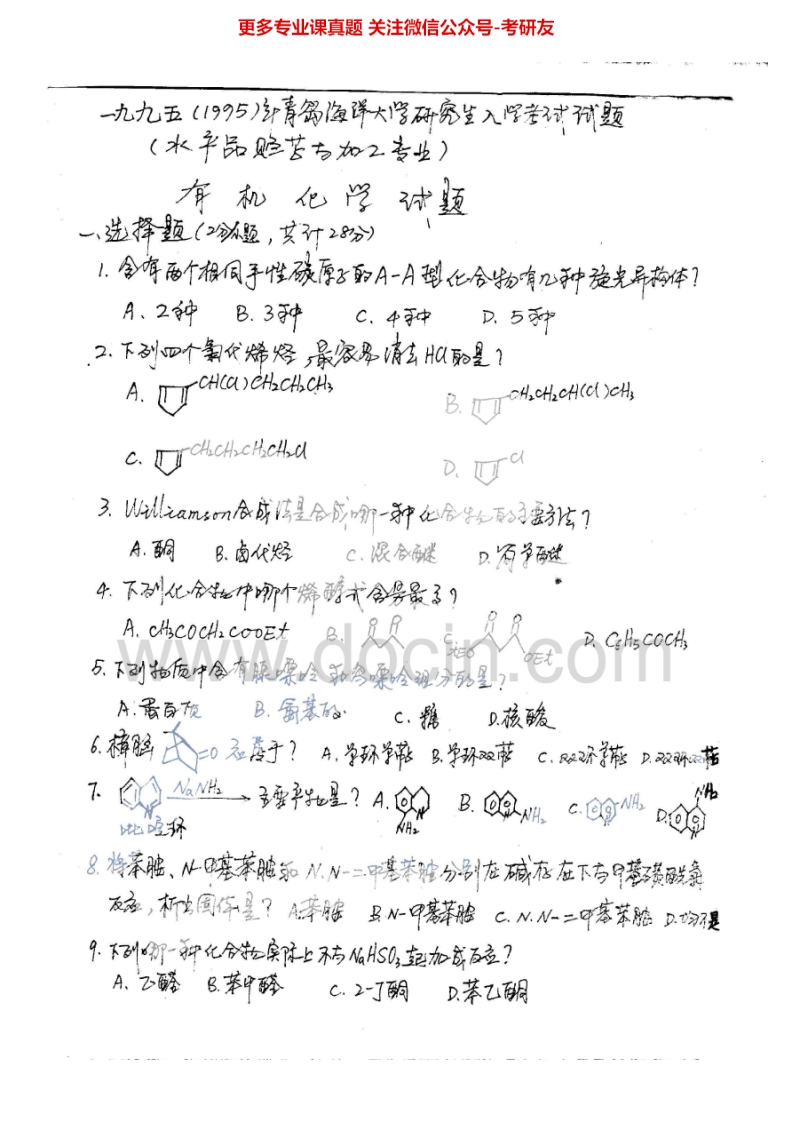 更多专业课真题 关注微信公众号-考研友
一九九五(1995)年青岛海洋大学研究生入学考试试题
(水产品贮芷与加工专业)
有机化学试题
一、选择题(2分/题,共计28分)
1. 含有两个相同手性碳原子的A-A型化合物有几种旋光异构体?
A、2种 B. 3种 C. 4种 D. 5种
2. 下列四个氯代烯烃,最容易消去HCl的是?
A. CH(Cl)CH2CH2CH3 B. CH2CH2CH(Cl)CH3
C. CH2CH2CH2CH2Cl D. Cl
3. Williamson合成法是合成哪一种化合物的主要方法?
A. 酮 B. 卤代烃 C. 混合醚 D. 简单醚
4. 下列化合物中哪个烯醇式含量最多?
A. CH3COCH2COOEt B. O O C. EtO O O OEt D. C6H5COCH3
5. 下列物质中含有脲嘌呤和鸟嘌呤组分的是?
A. 蛋白质 B. 氨基酸 C. 糖 D. 核酸
6. 樟脑 =O 应属于? A. 单环单萜 B. 单环双萜 C. 双环单萜 D. 双环双萜
7. N NaNH2 主要产物是? A. NH2 B. NH2 C. NH2 D. NH2
吡啶环
8. 将苯胺、N-甲基苯胺和N.N-二甲基苯胺分别在碱存在下与甲基磺酰氯
反应,析出固体是? A. 苯胺 B. N-甲基苯胺 C. N.N-二甲基苯胺 D. 均不是
9. 下列哪一种化合物实际上不与NaHSO3起加成反应?
A. 乙醛 B. 苯甲醛 C. 2-丁酮 D. 苯乙酮
www.docin.com